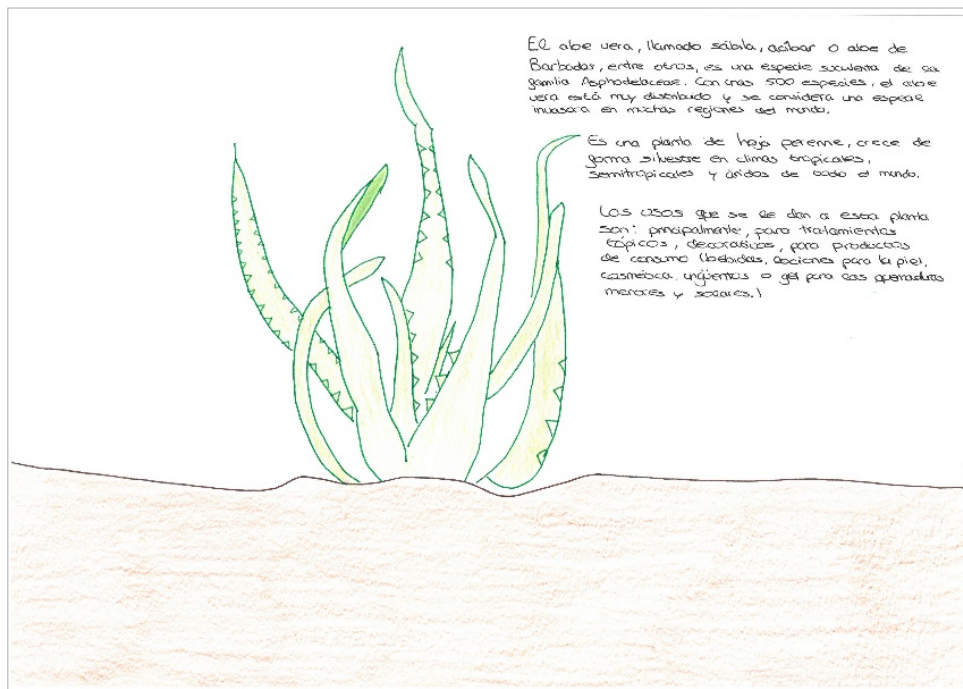 El aloe vera, llamado sábila, acíbar o aloe de
Barbados, entre otros, es una especie suculenta de la
familia Asphodelaceae. Con unas 500 especies, el aloe
vera está muy distribuido y se considera una especie
invasora en muchas regiones del mundo.
Es una planta de hoja perenne, crece de
forma silvestre en climas tropicales,
semitropicales y áridos de todo el mundo.
Los usos que se le dan a esta planta
son: principalmente, para tratamientos
tópicos, decorativos, para productos
de consumo (bebidas, lociones para la piel,
cosmética, ungüentos o gel para las quemaduras
menores y solares.)